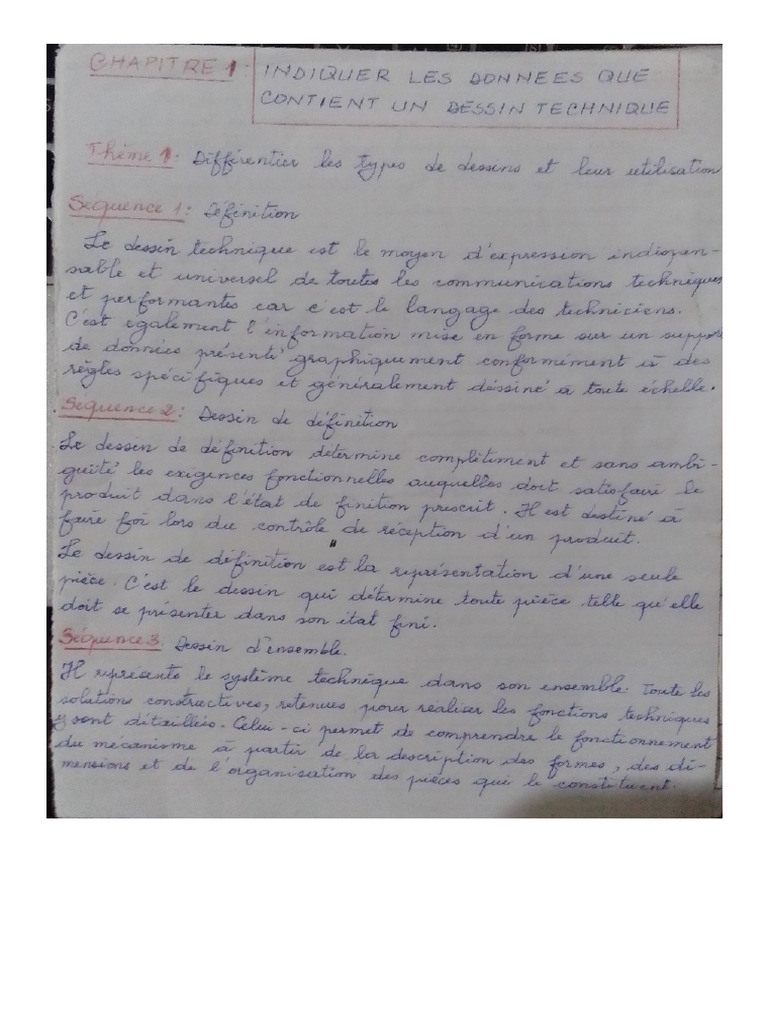 CHAPITRE 1: INDIQUER LES DONNEES QUE
CONTIENT UN DESSIN TECHNIQUE
Thème 1: Différentier les types de dessins et leur utilisation
Séquence 1: Définition
Le dessin technique est le moyen d'expression indispen-
sable et universel de toutes les communications techniques
et performantes car c'est le langage des techniciens.
C'est également l'information mise en forme sur un support
de données présenté graphiquement conformément à des
règles spécifiques et généralement déssiné à toute échelle.
Séquence 2: Dessin de définition
Le dessin de définition détermine complètement et sans ambi-
guïté les exigences fonctionnelles auquelles doit satisfaire le
produit dans l'état de finition prescrit. Il est destiné à
faire foi lors du contrôle de réception d'un produit.
Le dessin de définition est la représentation d'une seule
pièce. C'est le dessin qui détermine toute pièce telle qu'elle
doit se présenter dans son état fini.
Séquence 3: Dessin d'ensemble.
Il représente le système technique dans son ensemble. Toute les
solutions constructives, retenues pour réaliser les fonctions techniques
y sont détaillées. Celui-ci permet de comprendre le fonctionnement
du mécanisme à partir de la description des formes, des di-
mensions et de l'organisation des pièces qui le constituent.